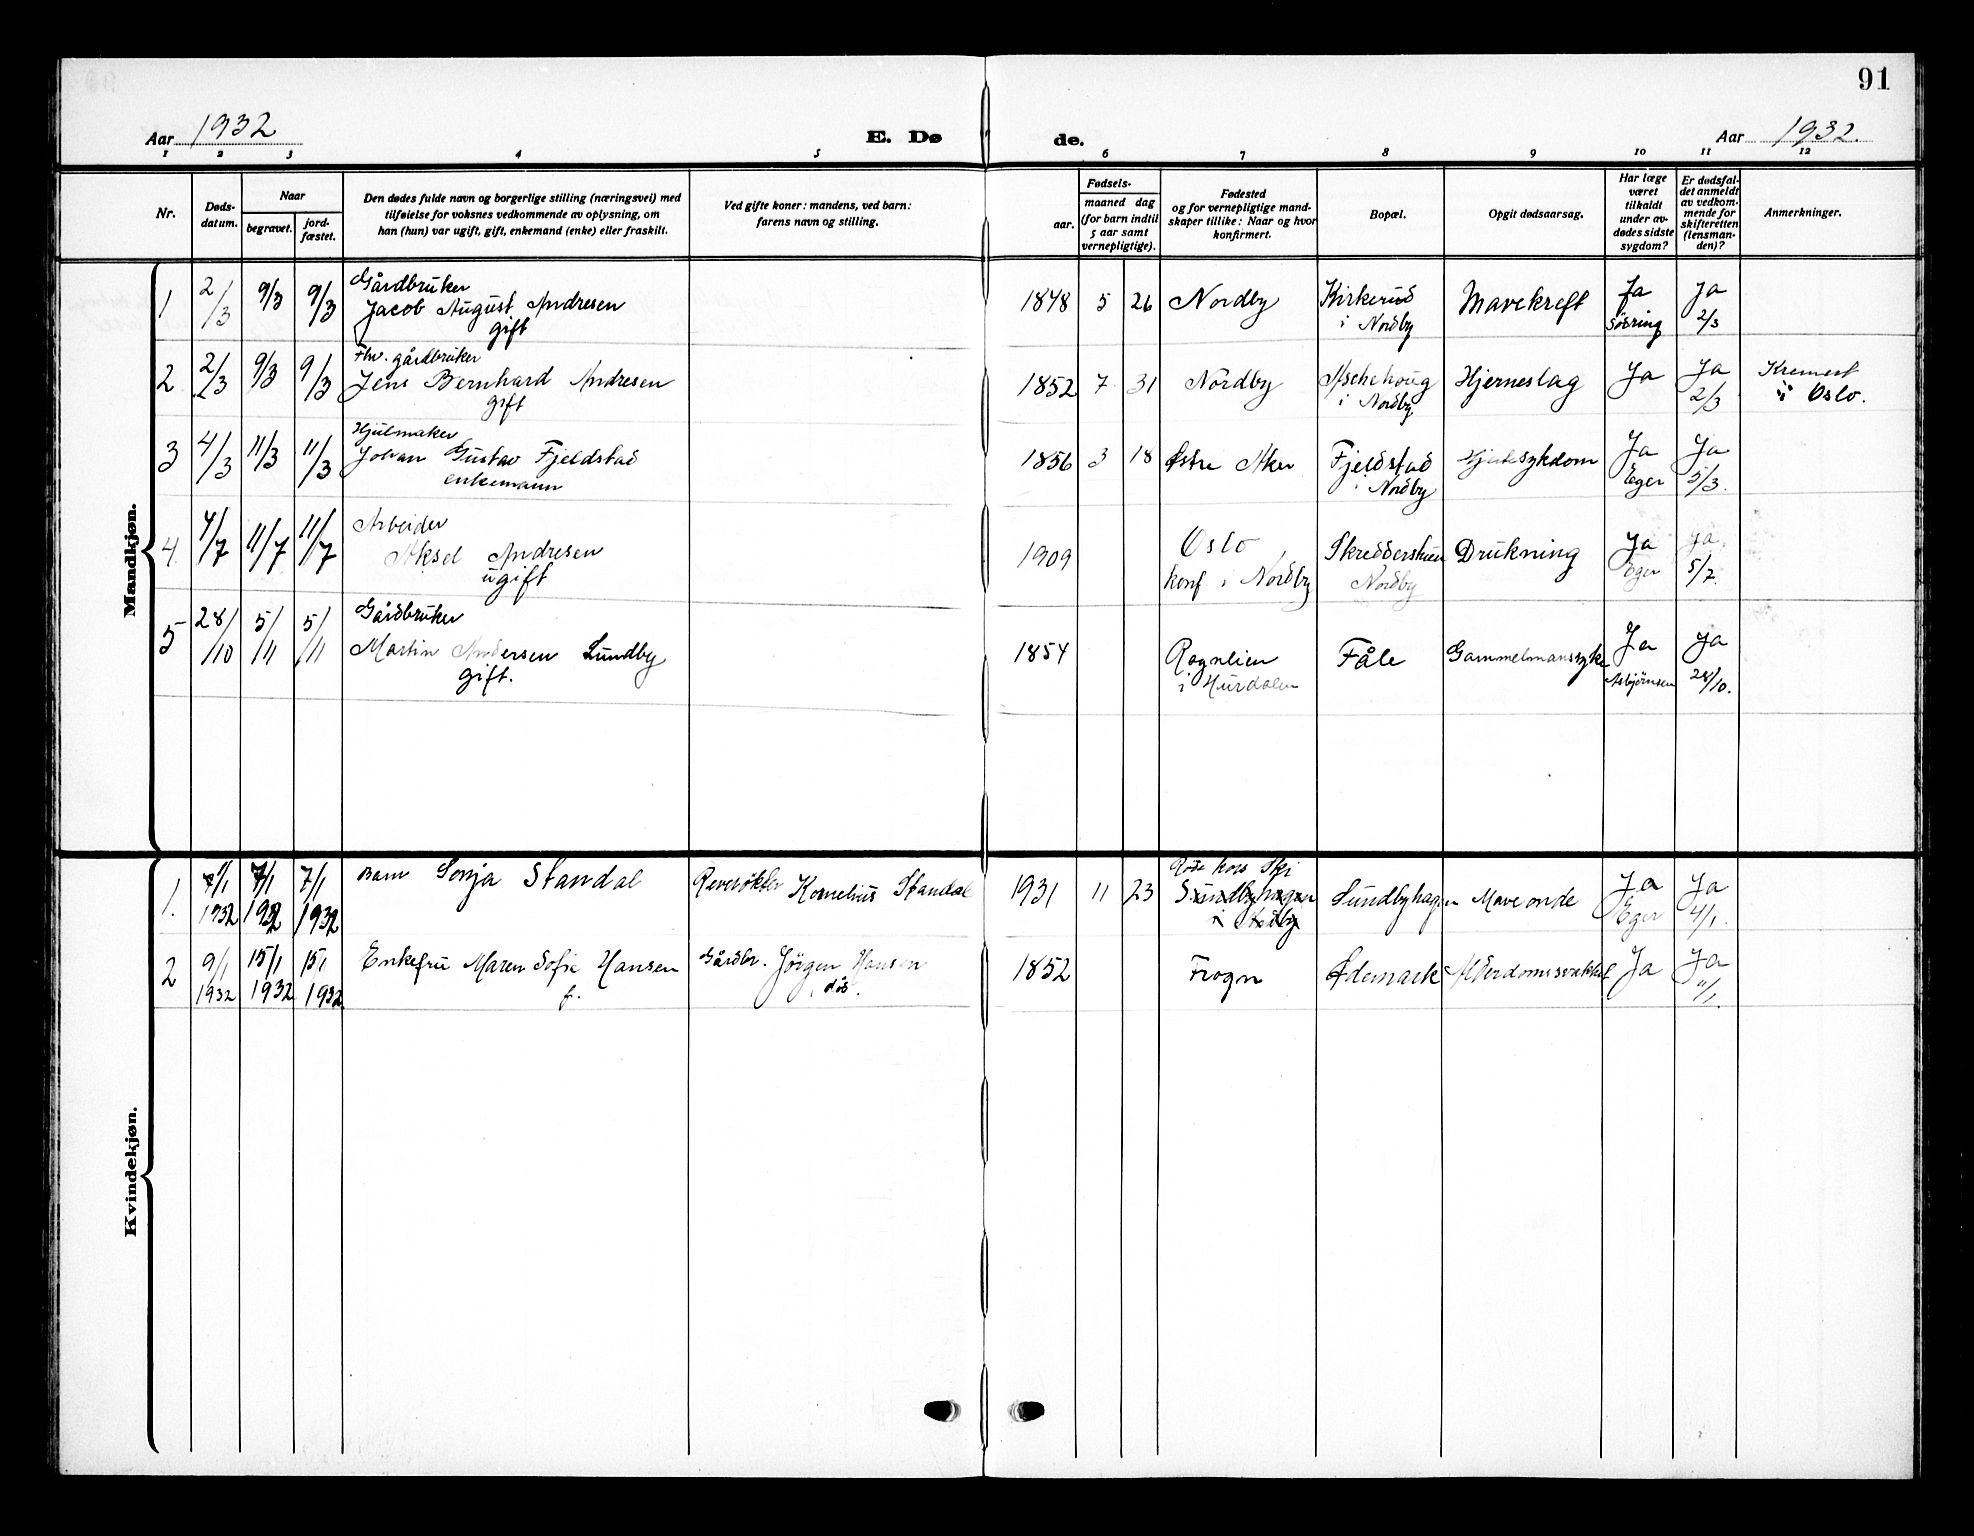 91
Aar 1932
E. Dø
de.
Aar 1932.
1 2 3 4 5 6 7 8 9 10 11 12
Nr.
Døds-
datum.
Naar
begravet.
jord-
fæstet.
Den dødes fulde navn og borgerlige stilling (næringsvei) med
tilføielse for voksnes vedkommende av oplysning, om
han (hun) var ugift, gift, enkemand (enke) eller fraskilt.
Ved gifte koner: mandens, ved barn:
farens navn og stilling.
Fødsels-
aar.
maaned dag
(for barn indtil
5 aar samt
vernepligtige).
Fødested
og for vernepligtige mand-
skaper tillike: Naar og hvor
konfirmert.
Bopæl.
Opgit dødsaarsag.
Har læge
været
tilkaldt
under av-
dødes sidste
sygdom?
Er dødsfal-
det anmeldt
av vedkom-
mende for
skifteretten
(lensman-
den)?
Anmerkninger.
Mandkjøn.
1 2/3 9/3 9/3 Gårdbruker
Jacob August Andresen
gift
1848 5 26 Nordby Kirkerud
i Nordby
Mavekreft Ja
Ja
2/3
2 2/3 9/3 9/3 Fhv. gårdbruker
Jens Bernhard Andresen
gift
1852 7 31 Nordby Aschehoug
i Nordby
Hjerneslag Ja Ja
2/3
Kremert
i Oslo.
3 4/3 11/3 11/3 Hjulmaker
Johan Gustav Fjeldstad
enkemann
1856 3 18 Østre Aker Fjeldstad
i Nordby
Hjertesykdom Ja
Eger
Ja
5/3.
4 4/7 11/7 11/7 Arbeider
Aksel Andresen
ugift
1909 Oslo
konf i Nordby
Skredderstuen
Nordby
Drukning Ja
Eger
Ja
5/7.
5 28/10 5/11 5/11 Gårdbruker
Martin Andersen Lundby
gift.
1854 Rognlien
i Hurdalen
Fåle Gammelmanssyke Ja
Asbjørnsen
Ja
28/10.
Kvindekjøn.
1. 1/1
1932
7/1
1932
7/1
1932
Barn Sonja Standal Reverøkter Kornelius Standal
1931 11 23 Røde kors Ski
Sundbyhagen
Sundbyhagen Mave onde Ja
Eger
Ja
4/1.
2 9/1
1932
15/1
1932
15/1
1932
Enkefru Maren Sofie Hansen
f.
Gårdbr. Jörgen Hansen
død.
1852 Frogn Ødemark Alderdomssvakhet Ja Ja
11/1.